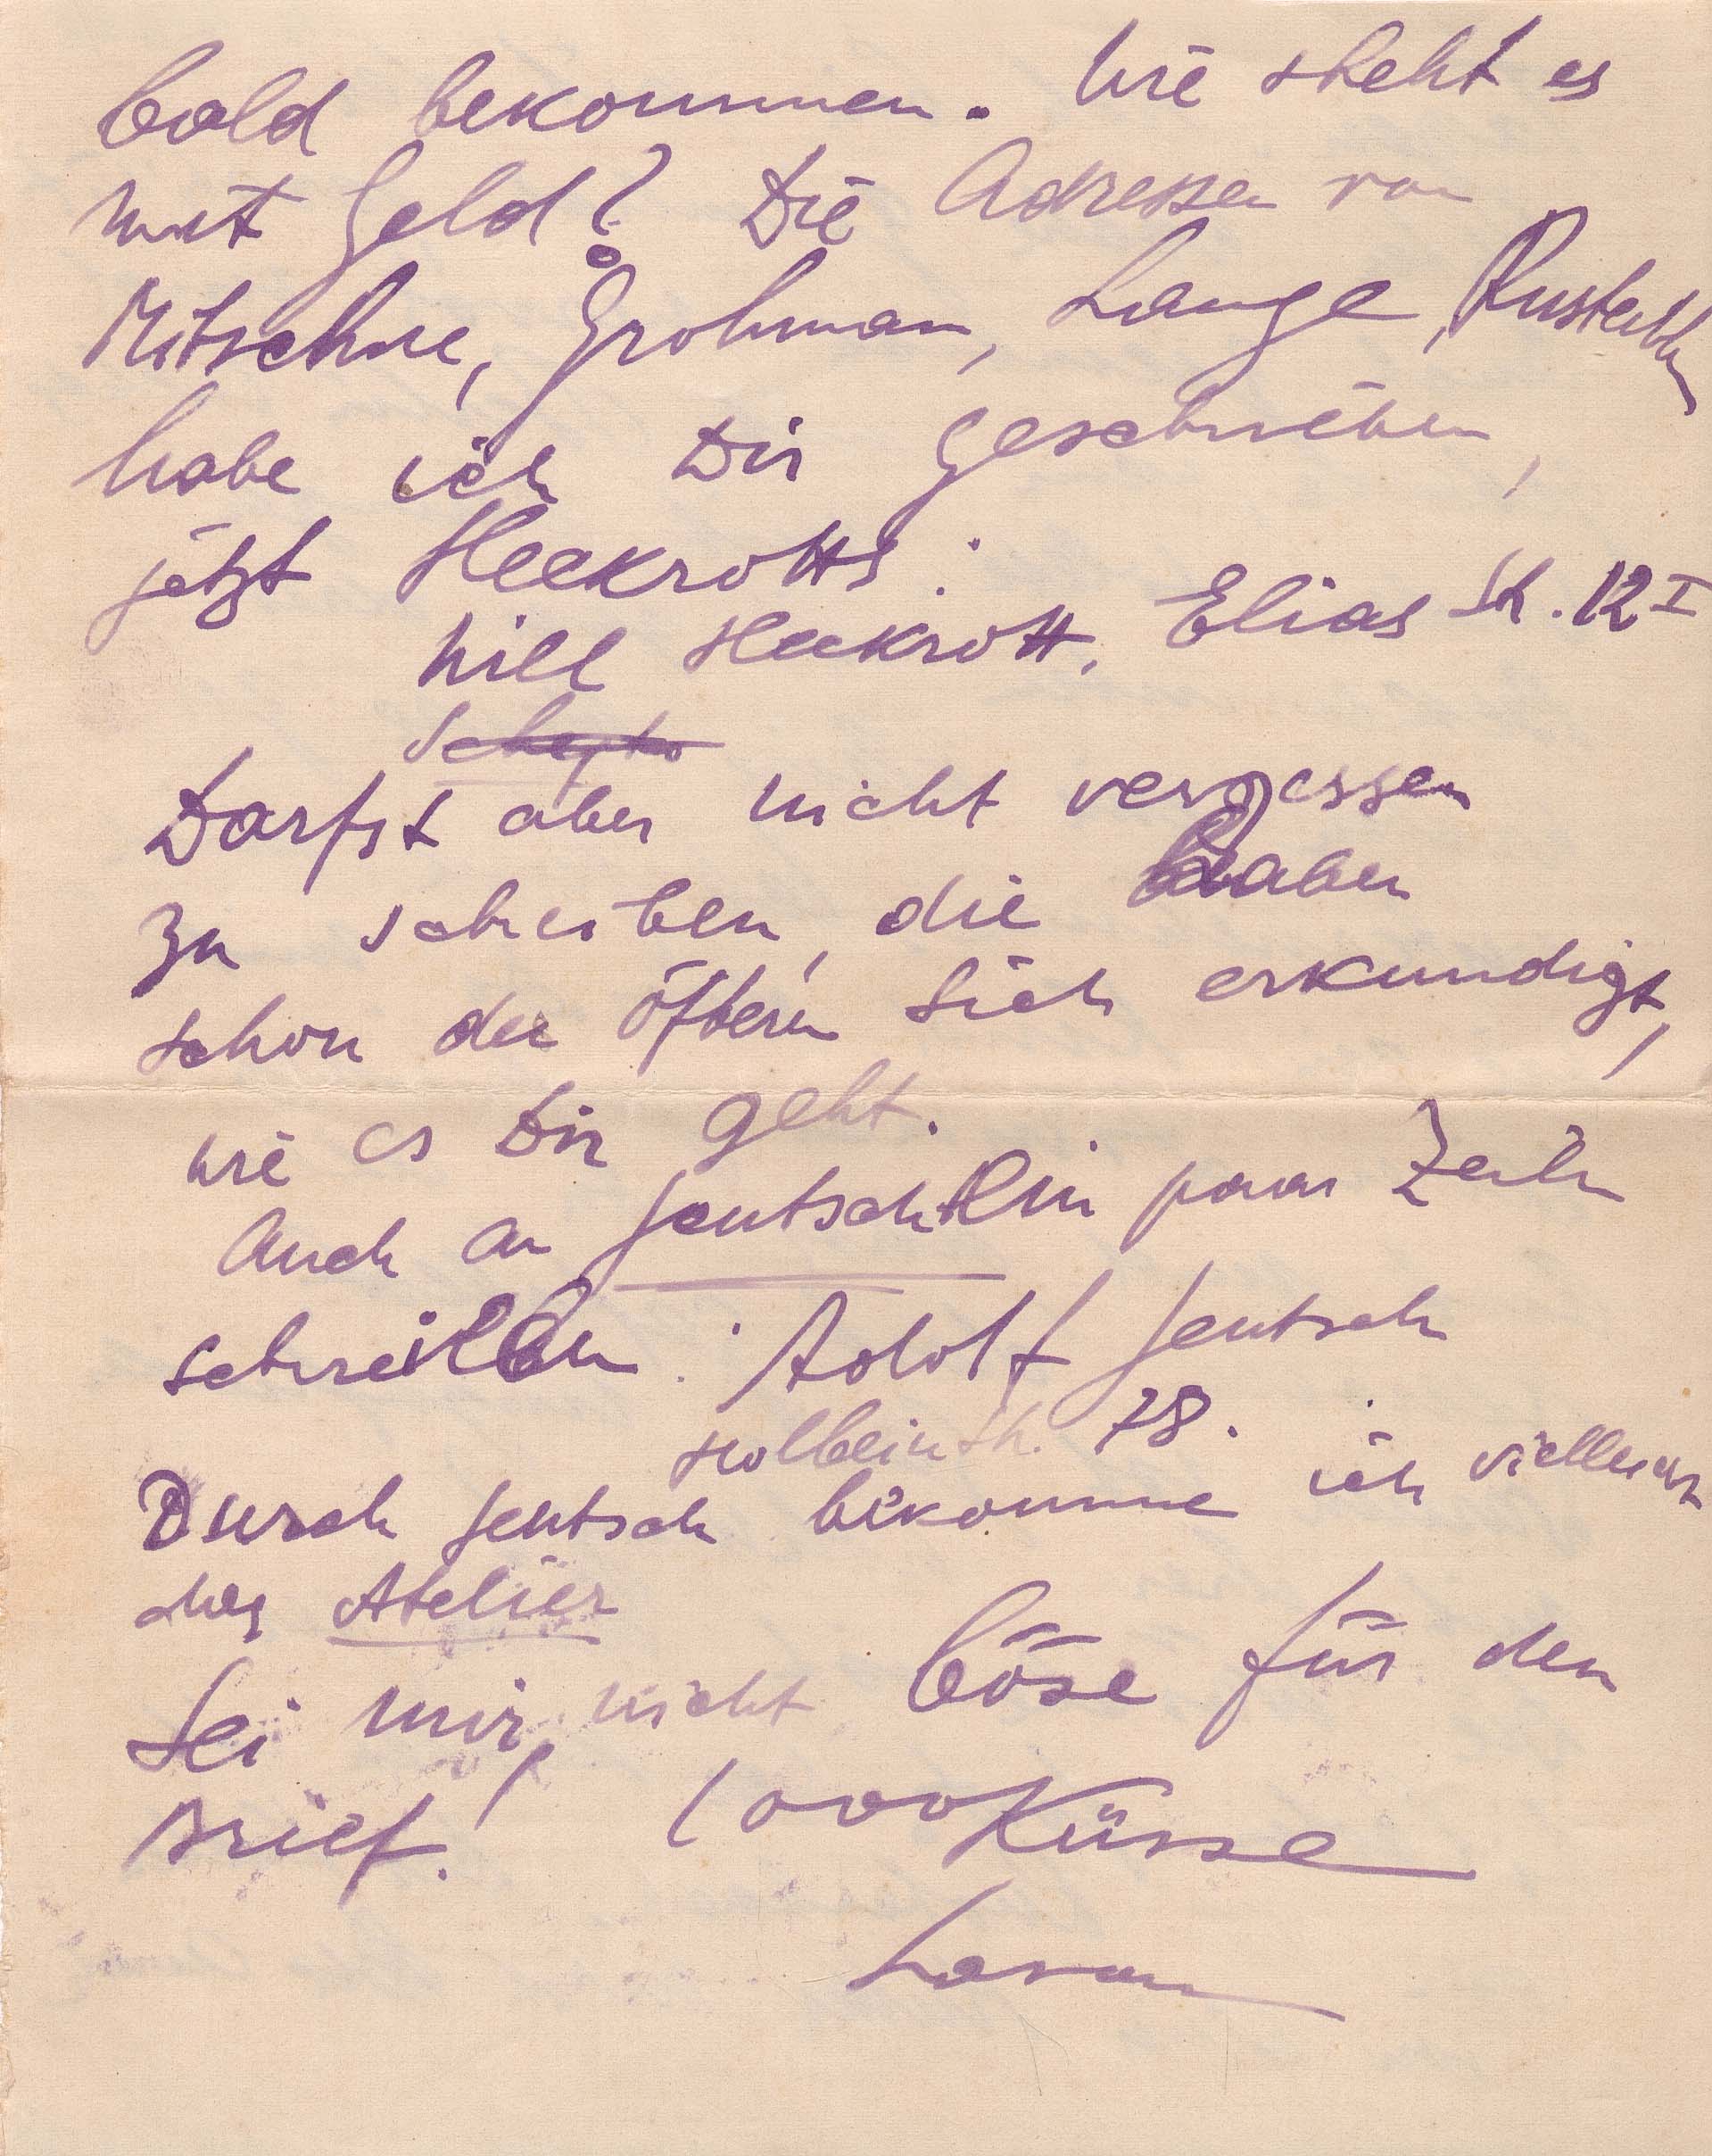 bald bekommen. Wie steht es
mit Geld? Die Adressen von
Mitschke, Grohman, Lange,
habe ich Dir geschrieben,
jetzt Heckrotts:
Will Heckrott, Elias Str. 12 I
Darfst aber nicht vergessen
zu schreiben, die haben
schon des öfteren sich erkundigt,
wie es Dir geht.
Auch an Jentsch ein paar Zeilen
schreiben: Adolf Jentsch
Holbeinstr. 78.
Durch Jentsch bekomme ich vielleicht
das Atelier
Sei mir nicht böse für den
Brief! 1000 Küsse